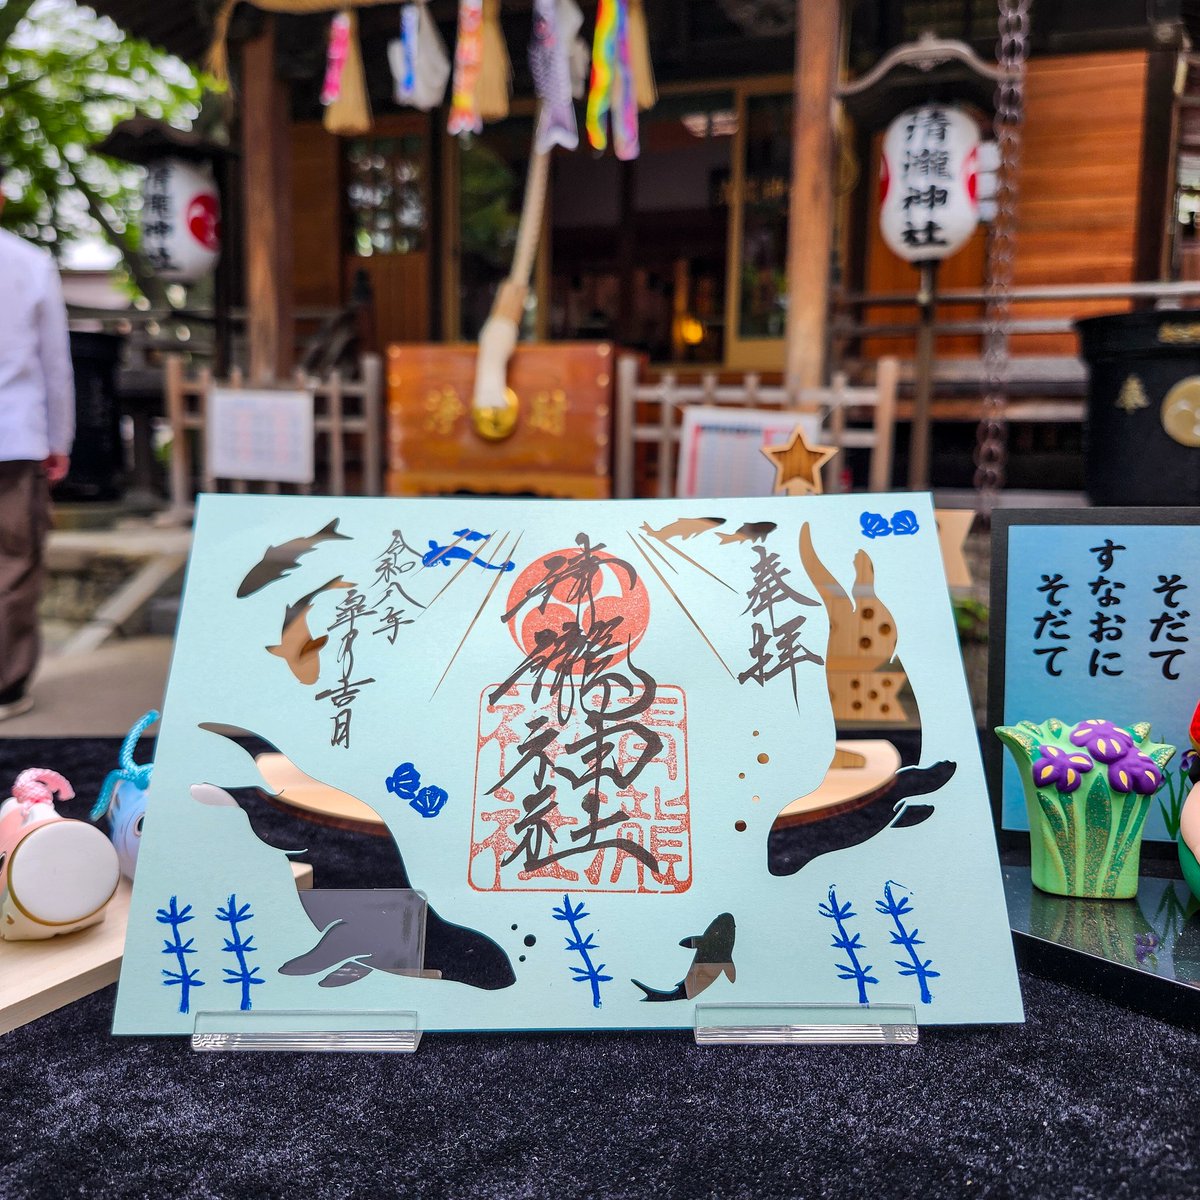 清瀧神社
清瀧神社
浄財
奉拝
清瀧神社
令和八年
皐月吉日
清瀧
神社
そだて
すなおに
そだて